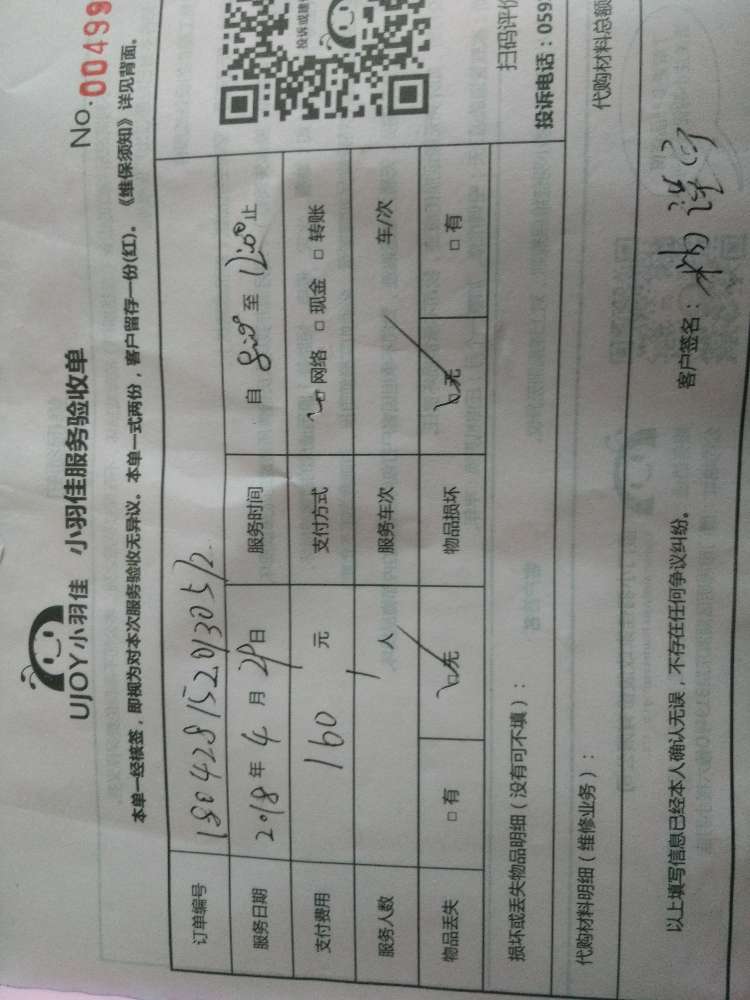 UJOY小羽佳 小羽佳服务验收单
No.00499
本单一经核签，即视为对本次服务验收无异议。本单一式两份，客户留存一份(红)。《维保须知》详见背面。
订单编号 1804281520130512
服务日期 2018年4月29日 服务时间 自 8:00 至 12:00 止
支付费用 160 元 支付方式 □网络 □现金 □转账
投诉或建
服务人数 1人 服务车次 车/次
物品丢失 □有 □无 物品损坏 □无 □有
扫码评价
损坏或丢失物品明细（没有可不填）：
投诉电话：059
代购材料明细（维修业务）：
代购材料总额
以上填写信息已经本人确认无误，不存在任何争议纠纷。
客户签名：